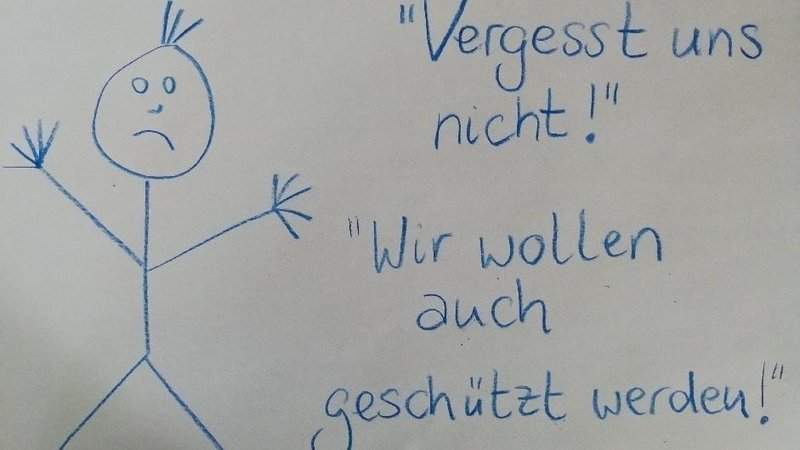 "Vergesst uns
nicht!"
"Wir wollen
auch
geschützt werden!"